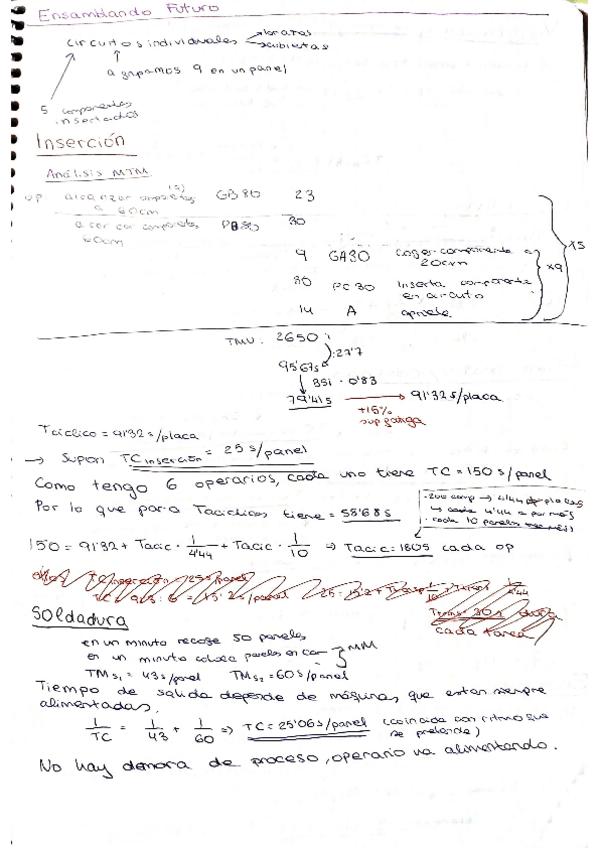 Ensamblando Futuro
circuitos individuales
baratas
cubiertas
agrupamos 9 en un panel
5 componentes insertados
Inserción
Análisis MTM
op alcanzar componetes (5) a 60cm GB80 23
acercar componente 60cm 30
9 GA30 coger componente a 20cm
30 PC30 Inserta componente en circuito
14 A apriete
x9
x5
TMU: 2650
:27'7
95'67s
BSI · 0'83
79'41s
+15% sup fatiga
91'32 s/placa
Tcíclico = 91'32 s/placa
→ Supon TC inserción = 25 s/panel
Como tengo 6 operarios, cada uno tiene TC = 150 s/panel
Por lo que para Tacíclicos tiene = 58'68s
· 200 comp → 4'44 placas
↳ cada 4'44
· cada 10 paneles
150 = 91'32 + Tacic · 1/4'44 + Tacic · 1/10 ⇒ Tacic = 180s cada op
cada tarea
Soldadura
en un minuto recoge 50 paneles
en un minuto coloca paneles en
MM
TMs₁ = 43s/panel TMs₂ = 60s/panel
Tiempo de salida depende de máquina, que estan siempre
alimentadas.
1/TC = 1/43 + 1/60 ⇒ TC = 25'06 s/panel (coincide con ritmo que se pretende)
No hay demora de proceso, operario va alimentando.